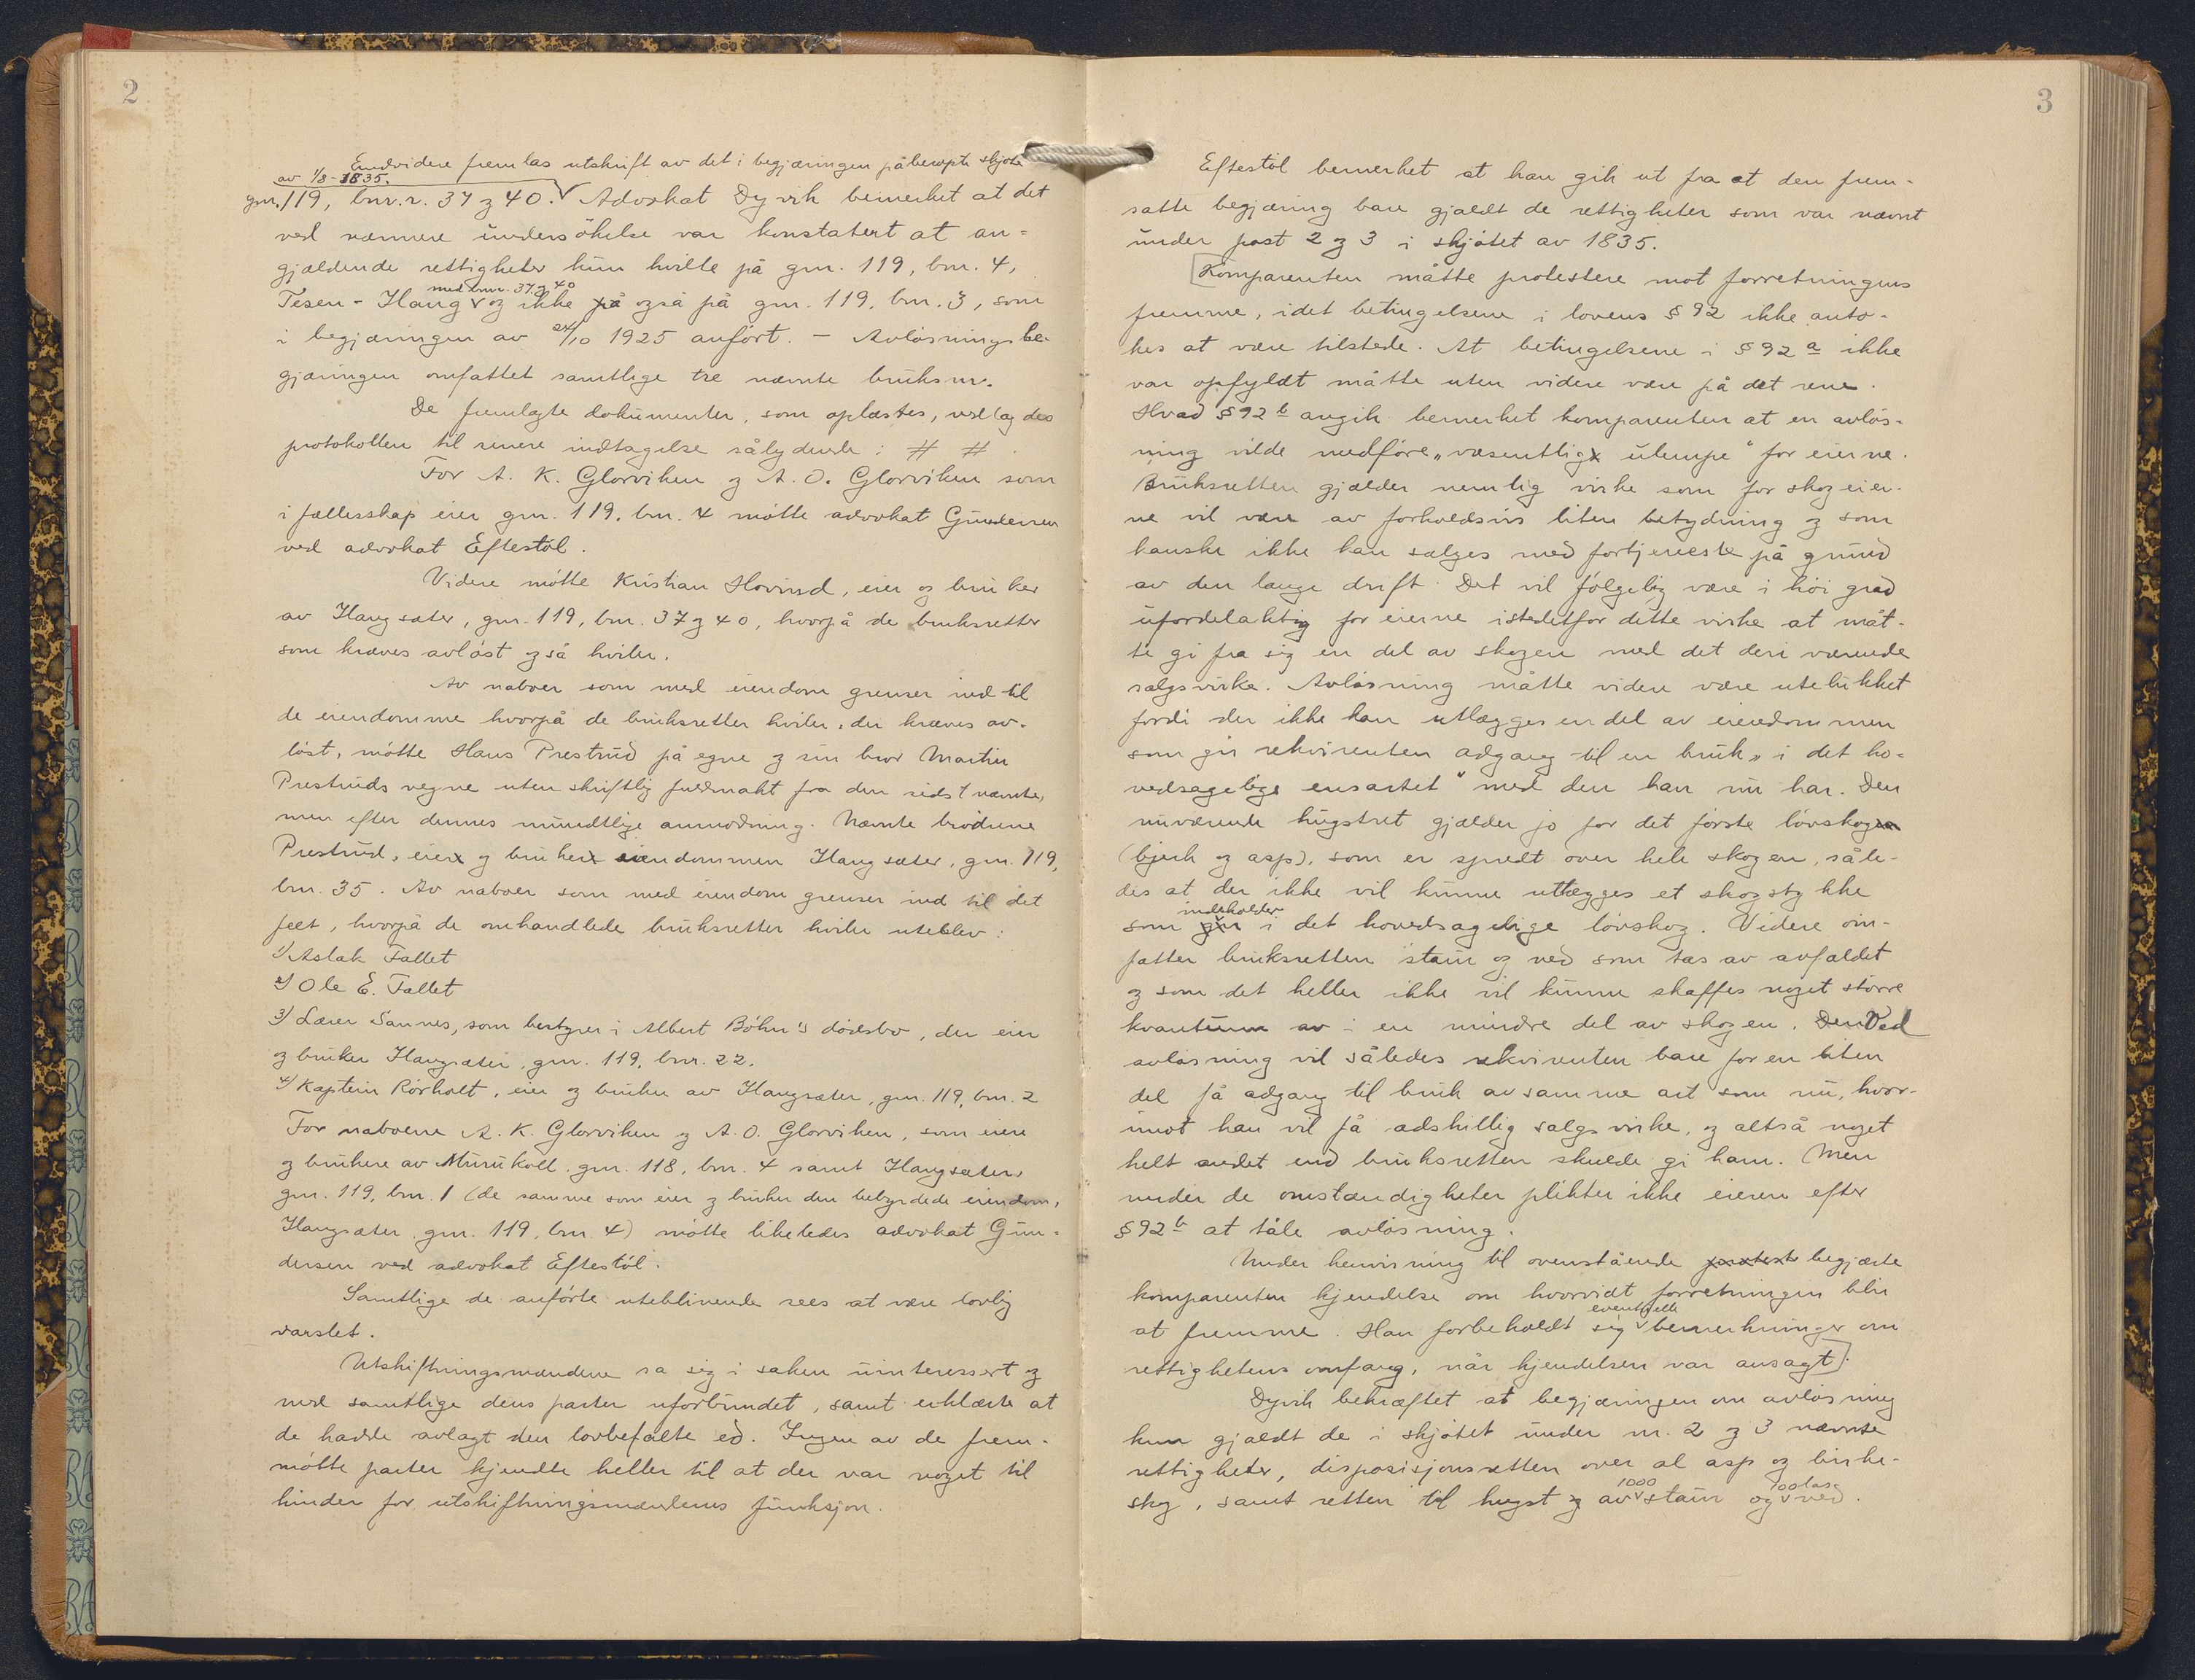 2
Endvidere fremlas utskrift av det i begjæringen påberopte skjøte
av 1/8-1835.
gnr. 119, bnr. 37 og 40. Advokat Dyvik bemerket at det
ved nærmere undersökelse var konstatert at an-
gjældende rettigheter kun hvilte på gnr. 119, bnr. 4,
med bnr. 37 og 40
Tesen-Haug og ikke på også på gnr. 119, bnr. 3, som
i begjæringen av 24/10 1925 anfört. - Avlösningsbe-
gjæringen omfattet samtlige tre nævnte bruksnr.
De fremlagte dokumenter, som oplæstes, vedlagdes
protokollen til senere indtagelse sålydende: # #
For A. K. Glorviken og A. O. Glorviken som
i fællesskap eier gnr. 119, bnr. 4 mötte advokat Gundersen
ved advokat Eftestöl.
Videre mötte Kristian Hovind, eier og bruker
av Haugsæter, gnr. 119, bnr. 37 og 40, hvorpå de bruksretter
som kræves avlöst også hviler.
Av naboer som med eiendom grenser ind til
de eiendomme hvorpå de bruksretter hviler, der kræves av-
löst, mötte Hans Prestrud på egne og sin bror Martin
Prestruds vegne uten skriftlig fuldmakt fra den sidstnævnte,
men efter dennes mundtlige anmodning. Nævnte brödrene
Prestrud, eier og bruker eiendommen Haugsæter, gnr. 119,
bnr. 35. Av naboer som med eiendom grenser ind til det
felt, hvorpå de omhandlede bruksretter hviler uteblev:
1) Aslak Fallet
2) Ole E. Fallet
3) Lærer Sannes, som bestyrer i Albert Böhn's dödsbo, der eier
og bruker Haugsæter, gnr. 119, bnr. 22.
4) Kaptein Rörholt, eier og bruker av Haugsæter, gnr. 119, bnr. 2
For naboerne A. K. Glorviken og A. O. Glorviken, som eiere
og brukere av Murukoll gnr. 118, bnr. 4 samt Haugsæter,
gnr. 119, bnr. 1 (de samme som eier og bruker den bebyrdede eiendom,
Haugsæter gnr. 119, bnr. 4) mötte likeledes advokat Gun-
dersen ved advokat Eftestöl.
Samtlige de anförte uteblivende sees at være lovlig
varslet.
Utskiftningsmændene sa sig i saken uinteressert og
med samtlige dens parter uforbundet, samt erklærte at
de hadde avlagt den lovbefalte ed. Ingen av de frem-
mötte parter kjendte heller til at der var noget til
hinder for utskiftningsmændenes funksjon.
3
Eftestöl bemerket at han gik ut fra at den frem-
satte begjæring bare gjaldt de rettigheter som var nævnt
under post 2 og 3 i skjötet av 1835.
[Komparenten måtte protestere mot forretningens
fremme, idet betingelsene i lovens § 92 ikke anto-
kes at være tilstede. At betingelsene i § 92 a ikke
var opfyldt måtte uten videre være på det rene.
Hvad § 92 b angik bemerket komparenten at en avlös-
ning vilde medföre „væsentlig ulempe" for eierne.
Bruksretten gjælder nemlig virke som for skogeier-
ne vil være av forholdsvis liten betydning og som
kanske ikke kan sælges med fortjeneste på grund
av den lange drift. Det vil fölgelig være i höi grad
ufordelaktig for eierne istedetfor dette virke at måt-
te gi fra sig en del av skogen med det deri værende
salgsvirke. Avlösning måtte videre være utelukket
fordi der ikke kan utlægges en del av eiendommen
som gir rekvirenten adgang til en bruk „i det ho-
vedsagelige ensartet" med den han nu har. Den
nuværende hugstret gjælder jo for det förste lövskogen
(bjerk og asp), som er spredt over hele skogen, såle-
des at der ikke vil kunne utlægges et skogstykke
indeholder
som gir i det hovedsagelige lövskog. Videre om-
fatter bruksretten staur og ved som tas av avfaldet
og som det heller ikke vil kunne skaffes noget större
kvantum av i en mindre del av skogen. Den Ved
avlösning vil således rekvirenten bare for en liten
del få adgang til bruk av samme art som nu, hvor-
imot han vil få adskillig salgsvirke, og altså noget
helt andet end bruksretten skulde gi ham. Men
under de omstændigheter plikter ikke eieren efter
§ 92 b at tåle avlösning.
Under henvisning til ovenstående protest begjærte
komparenten kjendelse om hvorvidt forretningen blir
eventuelle
at fremme. Han forbeholdt sig bemerkninger om
rettighetens omfang, når kjendelsen var avsagt].
Dyvik bekræftet at begjæringen om avlösning
kun gjældt de i skjötet under nr. 2 og 3 nævnte
rettigheter, disposisjonsretten over al asp og birke-
1000 100 las
skog, samt retten til hugst og av staur og ved.